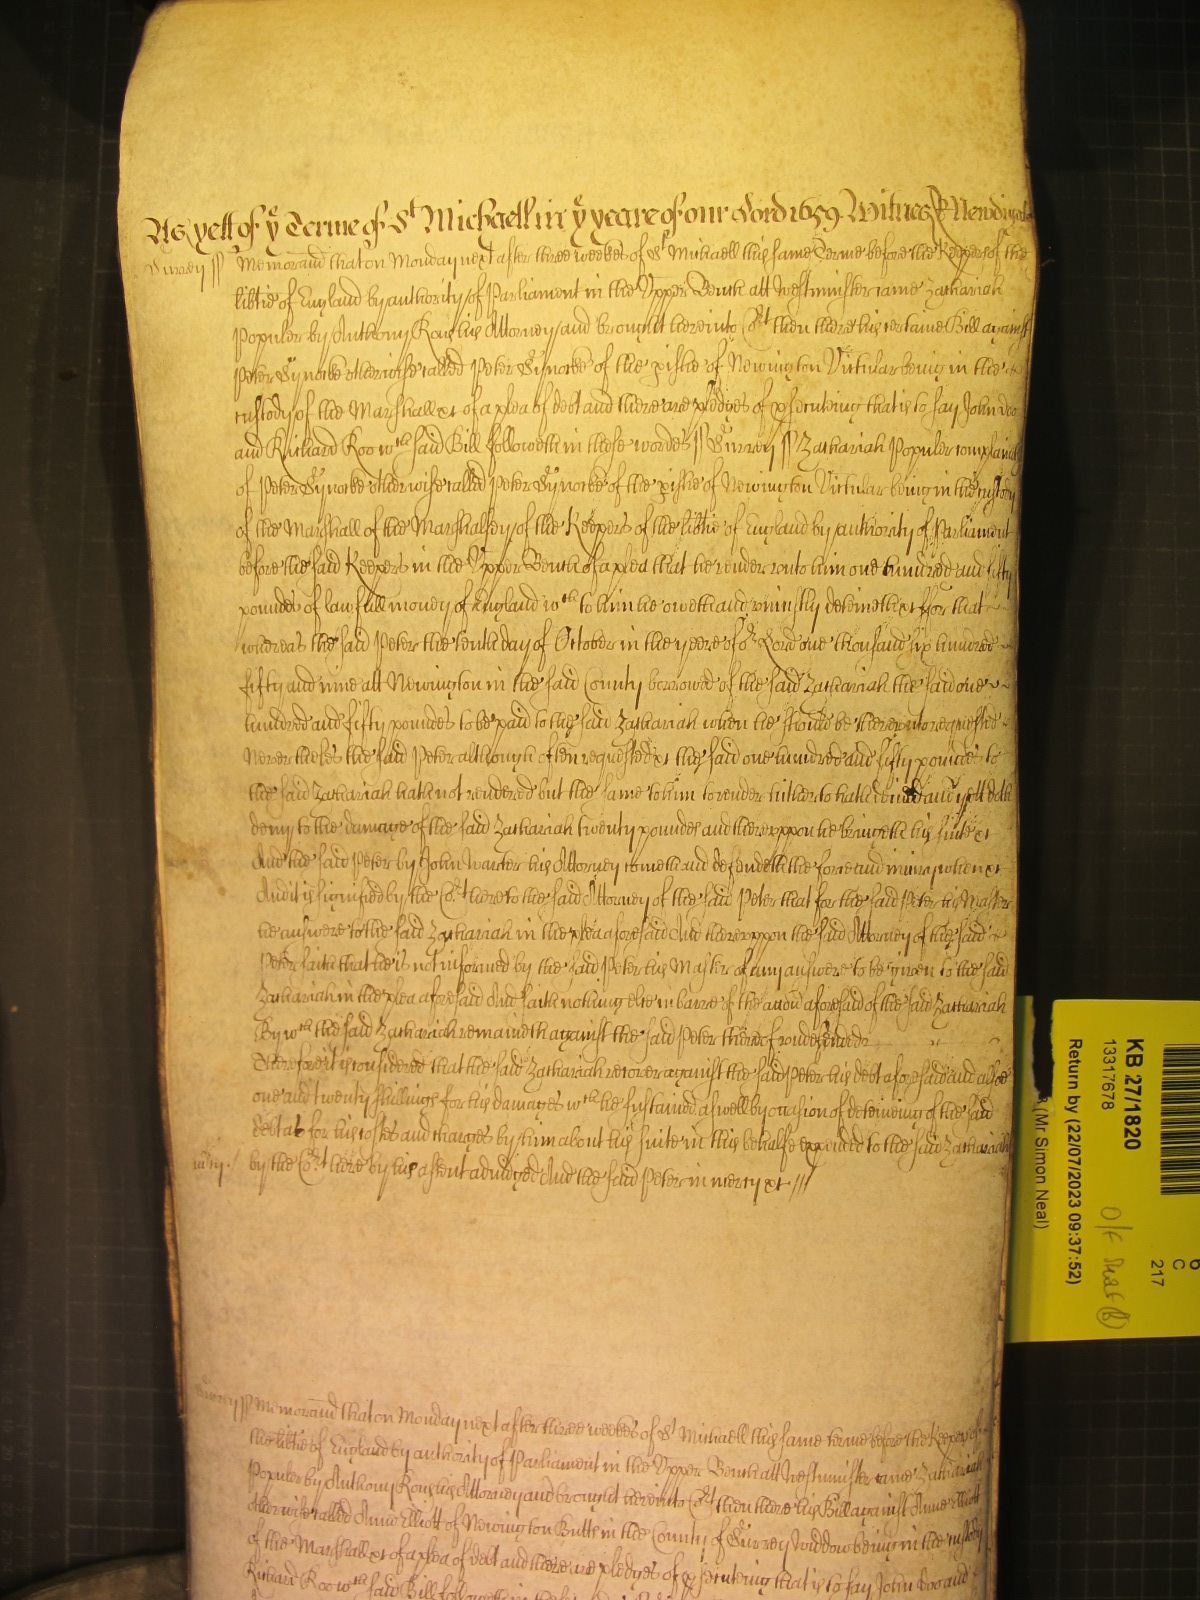 As yett of ye Terme of St Michaell in ye yeare of our Lord 1659 Witnes R Newdigate
Surrey ss Memorand that on Monday next after three weekes of St Michaell this same Terme before the Keepers of the
libtie of England by authority of Parliament in the Upper Bench att Westminster came Zachariah
Populer by Anthony Rous his Attorney and brought here into Cort then there his certaine Bill against
Peter otherwise called Peter of the pishe of Newington Victular being in the
custody of the Marshall xt of a plea of debt and there are pledges of psecuteing that is to say John Doo
and Richard Roo wch said Bill followeth in these wordes ss Surrey ss Zachariah Populer complaines
of Peter otherwise called Peter of the pishe of Newington Victular being in the custody
of the Marshall of the Marshalsey of the Keepers of the libtie of England by authority of Parliament
before the said Keepers in the Upper Bench of a plea that he render unto him one hundred and fifty
poundes of lawfull money of England wch to him he oweth and uniustly deteineth xt ffor that
whereas the said Peter the tenth day of October in the yeere of or Lord one thousand six hundred
fifty and nine att Newington in the said County borrowed of the said Zachariah the said one
hundred and fifty poundes to be paid to the said Zachariah when he should be thereunto requested
Neverthelës the said Peter although often requested xt the said one hundred and fifty poundes to
the said Zachariah hath not rendered but the same to him to render hitherto hath denied and yett doth
deny to the damage of the said Zachariah twenty poundes and thereuppon he bringeth his suite xt
And the said Peter by John Warter his Attorney cometh and defendeth the force and iniury when xt
And it is signified by the Cort here to the said Attorney of the said Peter that for the said Peter his Master
he answere to the said Zachariah in the plea aforesaid And thereuppon the said Attorney of the said
Peter saith that he is not informed by the said Peter his Master of any answere to be given to the said
Zachariah in the plea aforesaid And saith nothing else in barre of the accon aforesaid of the said Zachariah
By wch the said Zachariah remaineth against the said Peter thereof undefended
Therefore it is considered that the said Zachariah recover against the said Peter his debt aforesaid and alsoe
one and twenty shillings for his damages wch he sustained aswell by occasion of deteineing of the said
debt as for his costes and charges by him about his suite in this behalfe expended to the said Zachariah
mcy / by the Cort here by his assent adiudged And the said Peter in mercy xt
Surrey ss Memorand that on Monday next after three weekes of St Michaell this same terme before the Keepers of
the libtie of England by authority of Parliament in the Upper Bench att Westminster came Zachariah
Populer by Anthony Rous his Attorney and brought here into Cort then there his Bill against Anne Elliott
otherwise called Anne Elliott of Newington Butts in the County of Surrey Widdow being in the custody
of the Marshall xt of a plea of debt and there are pledges of psecuteing that is to say John Doo and
Richard Roo wch said Bill followeth in these
KB 27/1820
13317678
Return by (22/07/2023 09:37:52)
(Mr. Simon Neal)
6
C
217